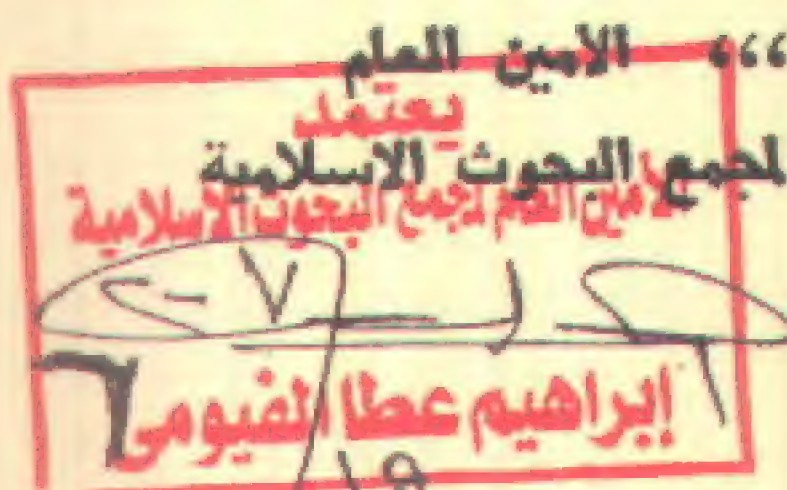 ،،، الأمين العام
يعتمد
لمجمع البحوث الاسلامية
الأمين العام لمجمع البحوث الاسلامية
إبراهيم عطا الفيومى